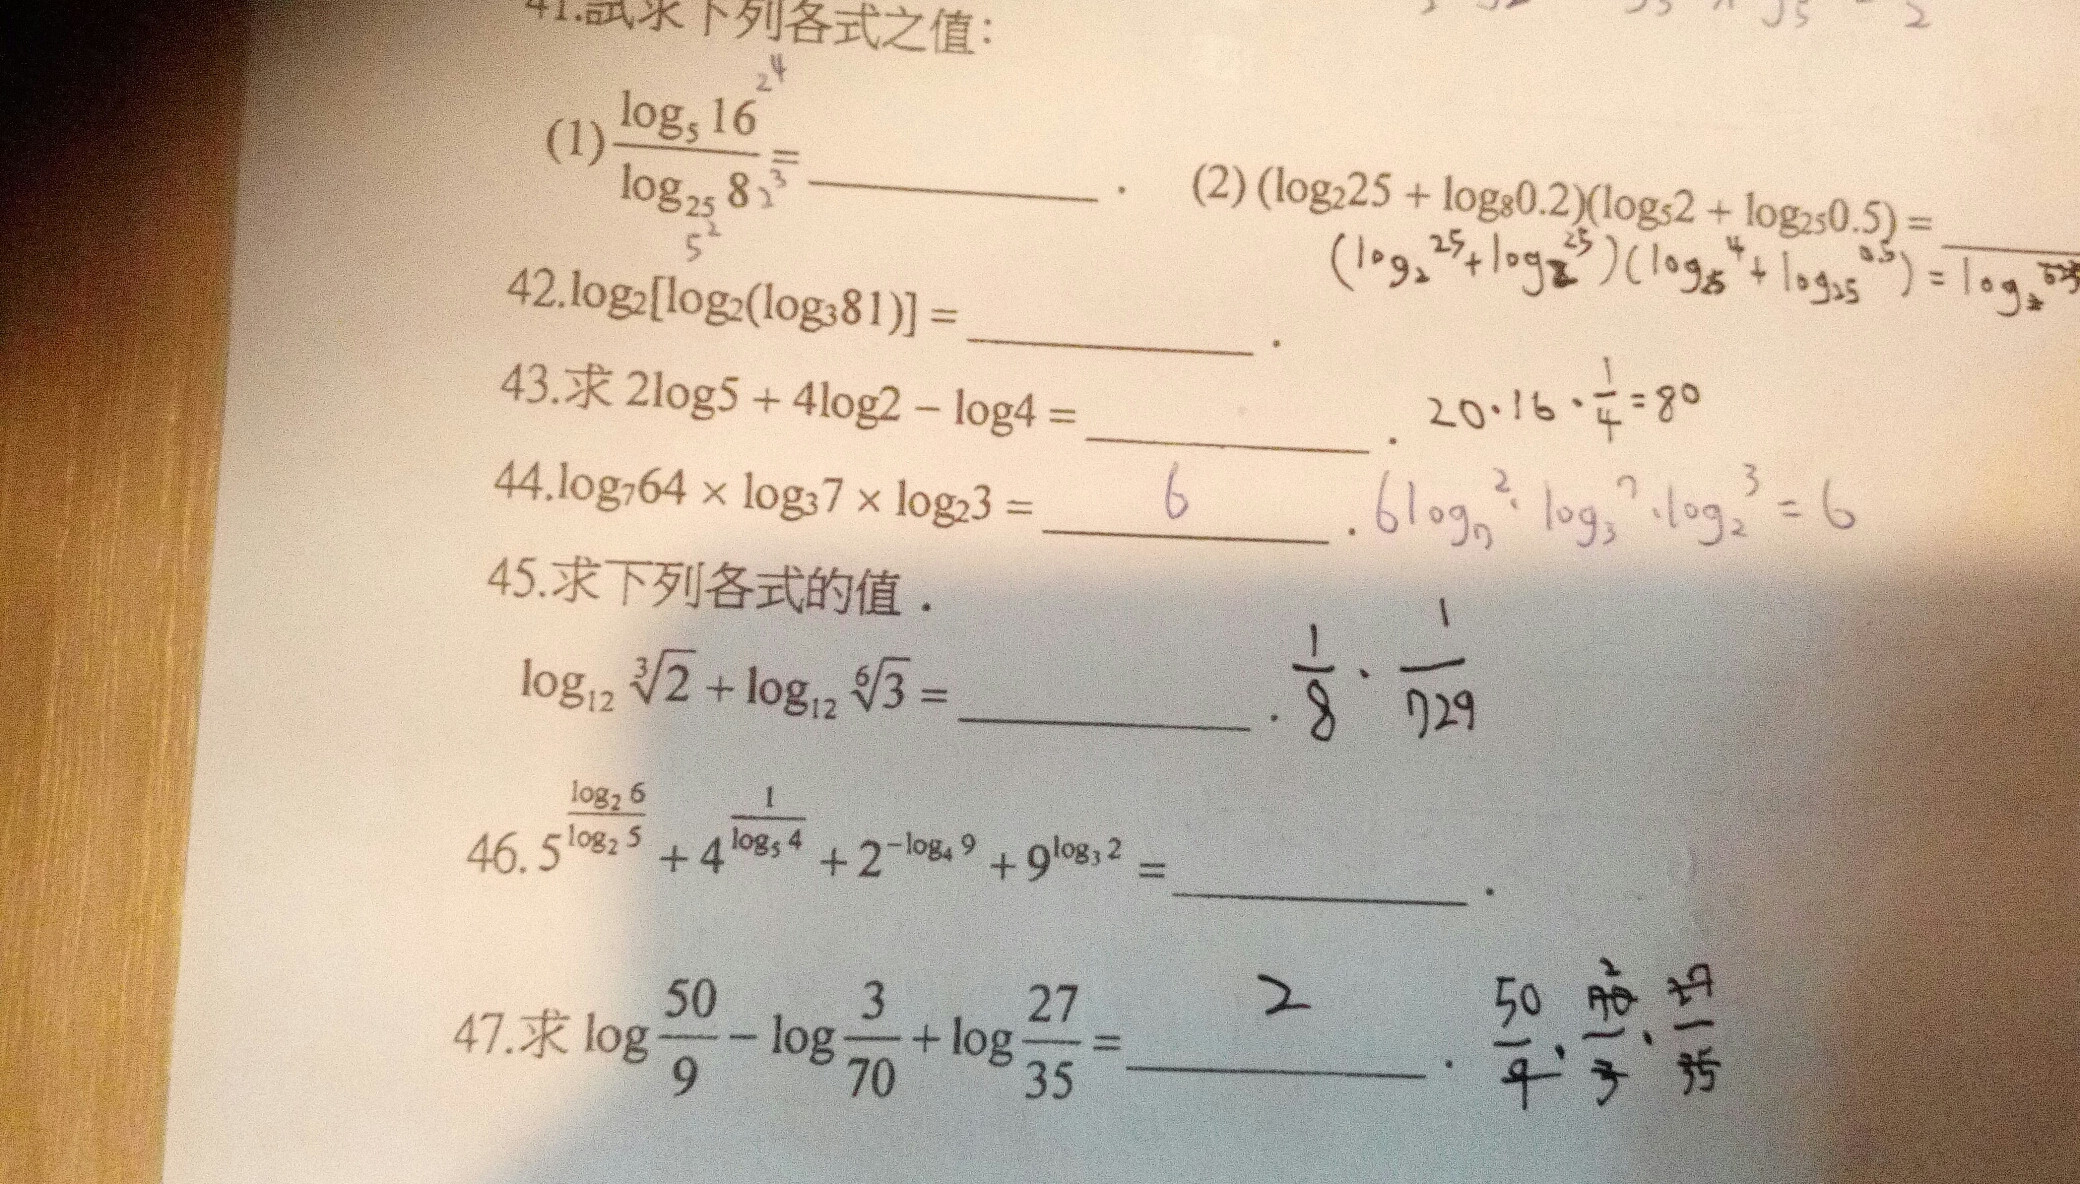 41.試求下列各式之值:
(1) log₅ 16 / log₂₅ 8 = ______ .
2⁴
2³
5²
(2) (log₂25 + log₈0.2)(log₅2 + log₂₅0.5) = ______
(log₂²⁵ + log₂²⁵)(log₅⁴ + log₂₅⁰·⁵) = log₂
42.log₂[log₂(log₃81)] = ______ .
43.求 2log5 + 4log2 − log4 = ______ . 20·16·1/4=80
44.log₇64 × log₃7 × log₂3 = 6 . 6log₇²·log₃⁷·log₂³=6
45.求下列各式的值.
log₁₂ ∛2 + log₁₂ ⁶√3 = ______ . 1/8 · 1/729
46. 5^(log₂ 6 / log₂ 5) + 4^(1 / log₅ 4) + 2^(−log₄ 9) + 9^(log₃ 2) = ______ .
47.求 log 50/9 − log 3/70 + log 27/35 = 2 . 50/9 · 70/3 · 27/35
2